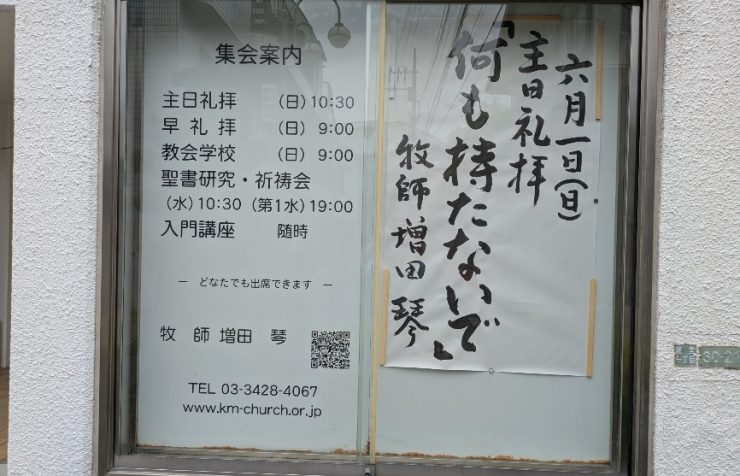 集会案内
主日礼拝 (日)10:30
早礼拝 (日) 9:00
教会学校 (日) 9:00
聖書研究・祈祷会
(水)10:30 (第1水)19:00
入門講座 随時
― どなたでも出席できます ―
牧師 増田 琴
TEL 03-3428-4067
www.km-church.or.jp
六月一日(日)
主日礼拝
「何も持たないで」
牧師 増田琴